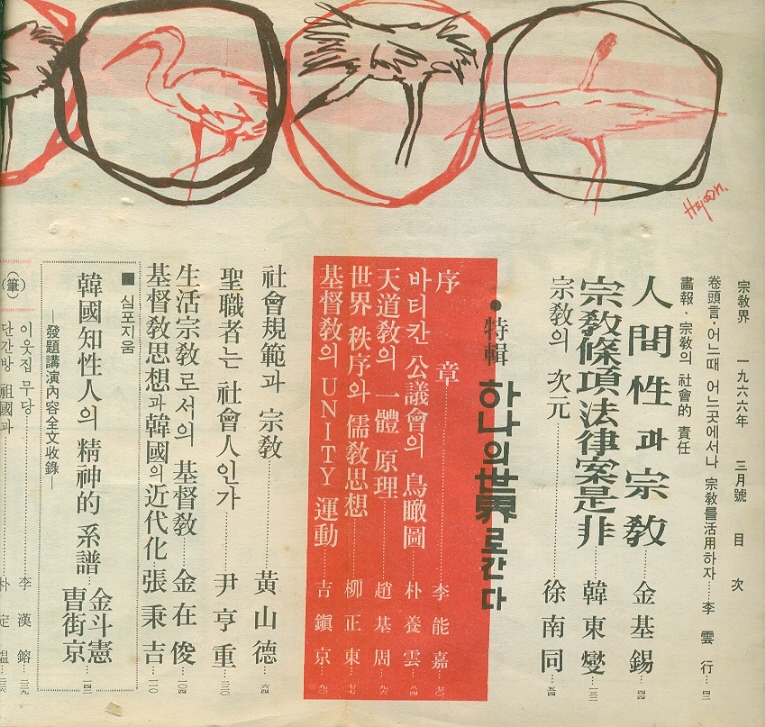 宗敎界 一九六六年 三月號 目次
卷頭言·어느때 어느곳에서나 宗敎를 活用하자 李雲行
畵報·宗敎의 社會的 責任
人間性과 宗敎 金基錫
宗敎條項法律案是非 韓東燮
宗敎의 次元 徐南同
●特輯 하나의世界로간다
序章 李能嘉
바티칸 公議會의 鳥瞰圖 朴養雲
天道敎의 一體 原理 趙基周
世界 秩序와 儒敎思想 柳正東
基督敎의 UNITY 運動 吉鎭京
社會規範과 宗敎 黃山德
聖職者는 社會人인가 尹亨重
生活宗敎로서의 基督敎 金在俊
基督敎思想과 韓國의 近代化 張秉吉
■ 심포지움
韓國知性人의 精神的 系譜 金斗憲 曺街京
—發題講演內容全文收錄—
(筆)
이웃집 무당 李漢鎔
단간방 祖國과
Hajoon.